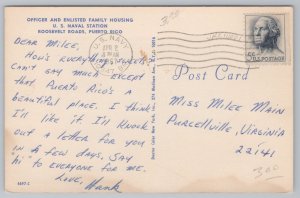 OFFICER AND ENLISTED FAMILY HOUSING
U. S. NAVAL STATION
ROOSEVELT ROADS, PUERTO RICO
DEAR MILEE,
HOW'S EVERYTHING?
CAN'T SAY MUCH EXCEPT
THAT PUERTO RICO'S A
BEAUTIFUL PLACE. I THINK
I'LL LIKE IT. I'LL KNOCK
OUT A LETTER FOR YOU
IN A FEW DAYS, SAY
"hi" TO EVERYONE FOR ME.
LOVE,
Hank
U.S. NAVY
5¢ U.S. POSTAGE
Post Card
MISS MILEE MAIN
PURCELLVILLE, VIRGINIA
22141
300